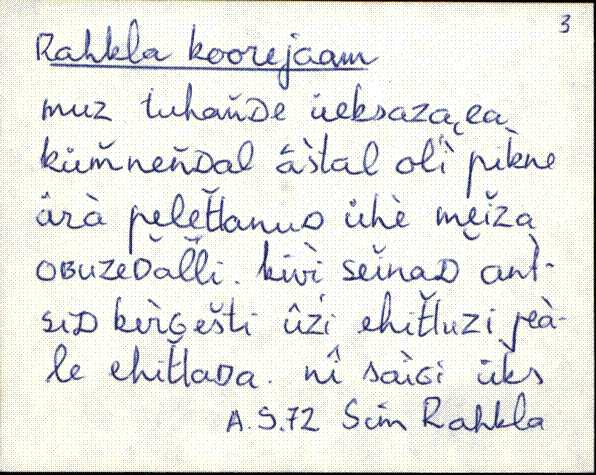 3
Rahkla koorejaam
muz tuhaňDe üeksaza,ea
küm̌neňDal âs̀tal olì pik̀ne
ärà peletľanuD ühè mėiža
oBuzeDaľli. kivì seinaD ant̀-
siD kèrGešti ûzi ehitľuzi peà-
le ehitľaDa. nî saìGi üks
A.S.72 Sim Rahkla